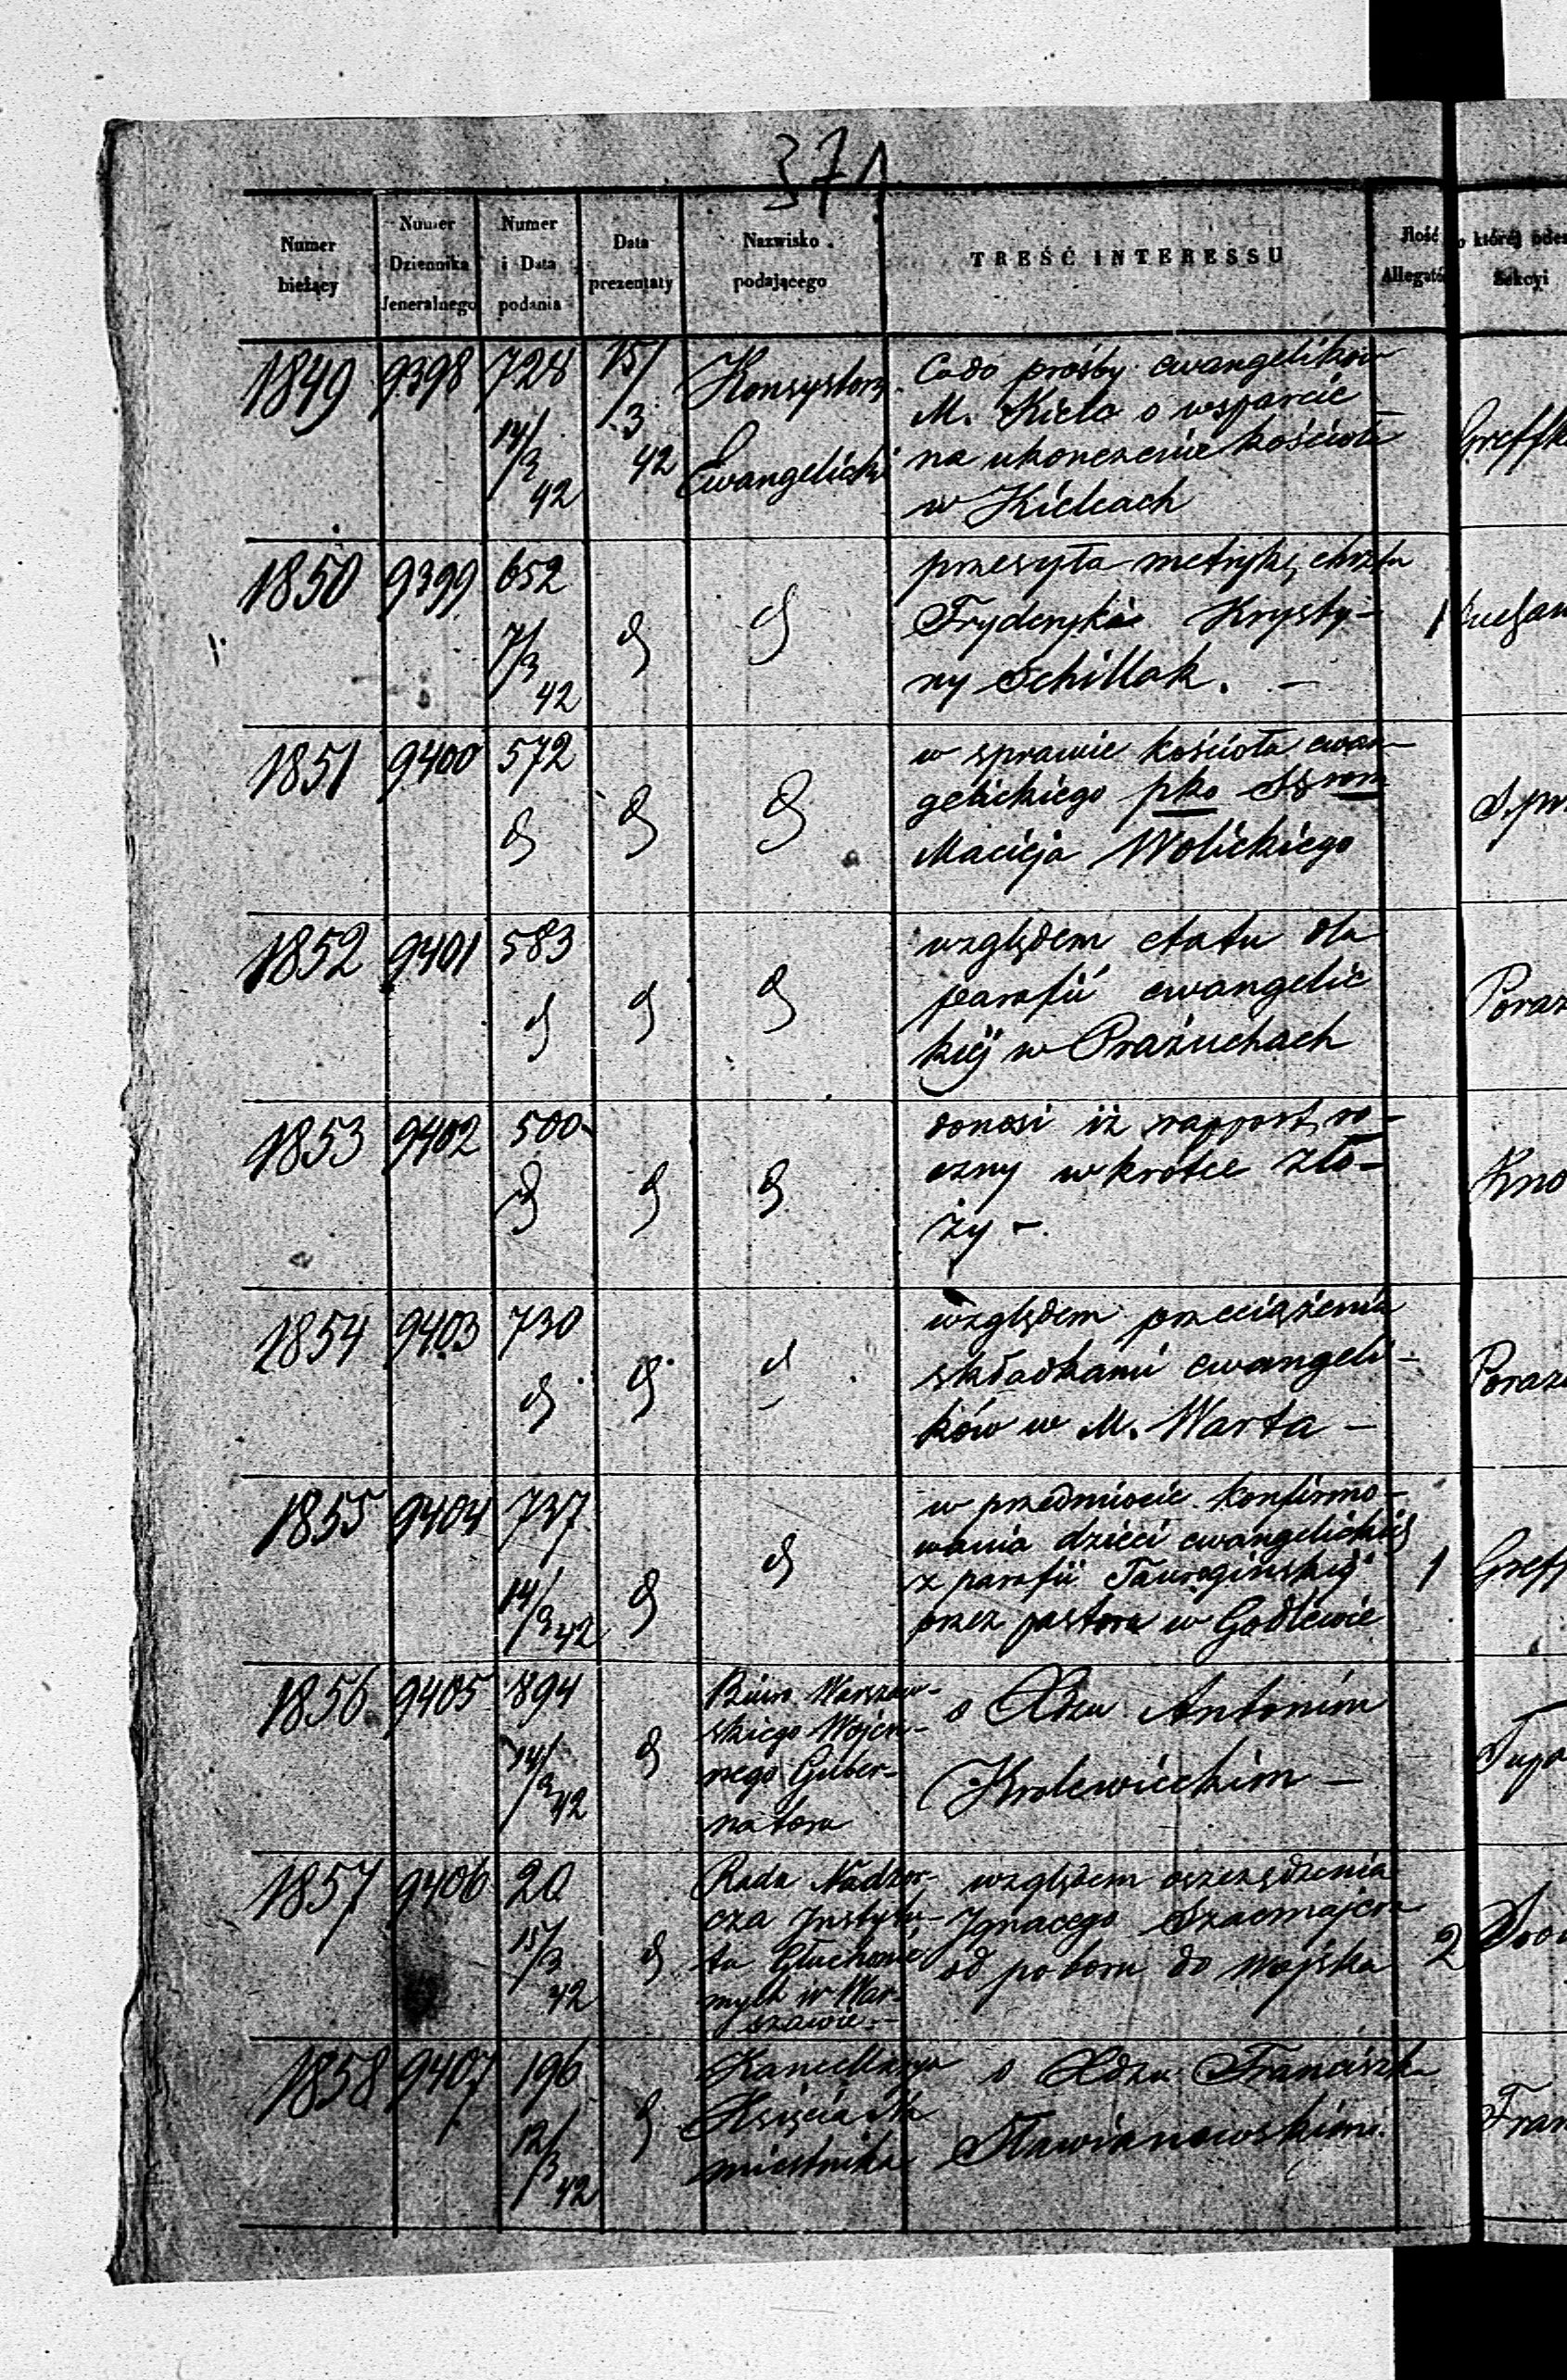 371
Numer bieżący
Numer Dziennika Jeneralnego
Numer i Data podania
Data prezentaty
Nazwisko podającego
TREŚĆ INTERESSU
Ilość
której
Sekcyi
1849 9398 728 14/3 42 15/3 42
Konsystorz
Ewangelicki
Co do prośby ewangelików
M. Kielc o wsparcie
na ukończenie kościoła
w Kielcach
1850 9399 652 7/3 42
przesyła metrykę chrztu
Fryderyki Krysty-
ny Schillak. —
1
1851 9400 572
w sprawie kościoła ewan-
gelickiego pko
Macieja Wolickiego
1852 9401 583
względem etatu dla
parafii ewangelic
kiéj w Prażuchach
1853 9402 500
donosi iż rapport ro-
czny wkrótce zło-
ży —
1854 9403 730
względem przeciążenia
składkami ewangeli-
ków w M. Warta —
1855 9404 737 14/3 42
w przedmiocie konfirmo-
wania dzieci ewangelickich
z parafii Taurogińskiéj
przez pastora w Godlewie
1
1856 9405 894 14/3 42
Biuro Warszaw-
skiego Wojen-
nego Guber-
natora
o Xdzu Antonim
Krolewieckim —
1857 9406 20 15/3 42
Rada Nadzor-
cza Instytu-
tu Głuchonie
mych w War-
szawie —
względem oszczędzenia
Ignacego
od poboru do wojska
2
1858 9407 196 12/3 42
Kancellarya
Księcia Na
miestnika
o Xdzu Franciszku
Sławianowskim